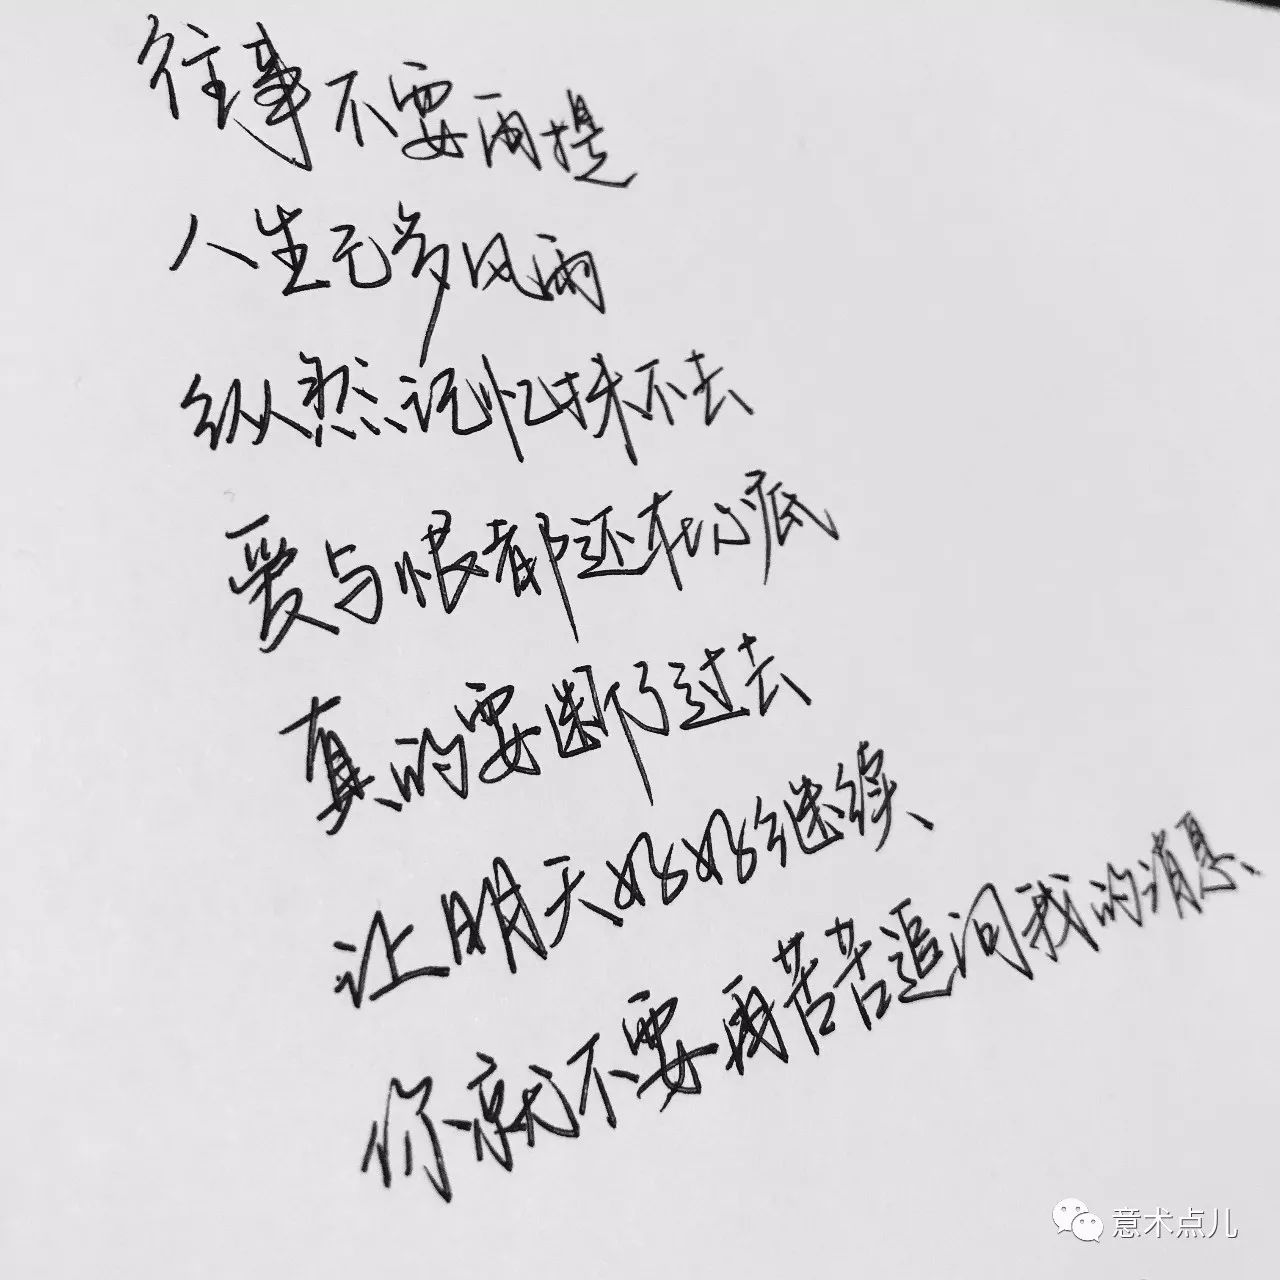 往事不要再提
人生已多风雨
纵然记忆抹不去
爱与恨都还在心底
真的要断了过去
让明天好好继续
你就不要再苦苦追问我的消息
意术点儿